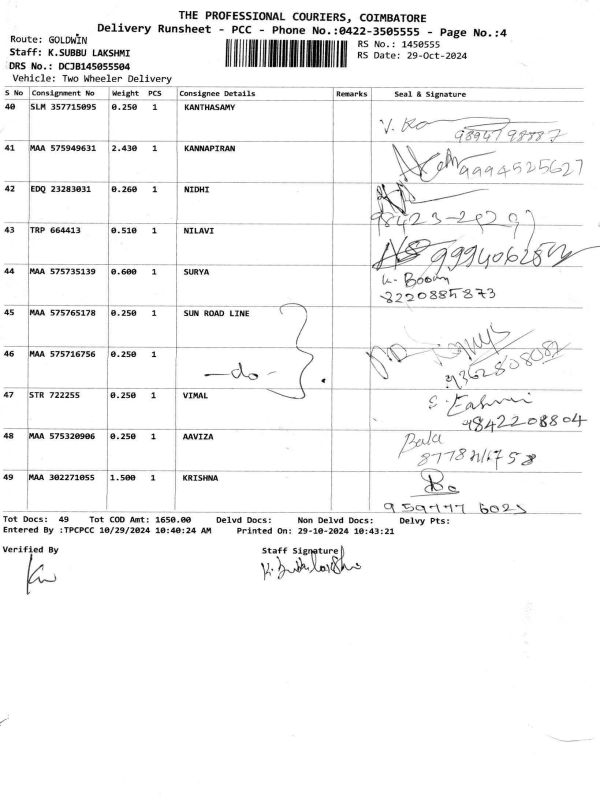 THE PROFESSIONAL COURIERS, COIMBATORE
Delivery Runsheet - PCC - Phone No.:0422-3505555 - Page No.:4
Route: GOLDWIN
RS No.: 1450555
Staff: K.SUBBU LAKSHMI
RS Date: 29-Oct-2024
DRS No.: DCJB145055504
Vehicle: Two Wheeler Delivery
S No Consignment No Weight PCS Consignee Details Remarks Seal & Signature
40 SLM 357715095 0.250 1 KANTHASAMY
41 MAA 575949631 2.430 1 KANNAPIRAN
9994525627
42 EDQ 23283031 0.260 1 NIDHI
43 TRP 664413 0.510 1 NILAVI
44 MAA 575735139 0.600 1 SURYA
8220885873
45 MAA 575765178 0.250 1 SUN ROAD LINE
46 MAA 575716756 0.250 1 —do—
9362808082
47 STR 722255 0.250 1 VIMAL
9842208804
48 MAA 575320906 0.250 1 AAVIZA Bala
49 MAA 302271055 1.500 1 KRISHNA
Tot Docs: 49 Tot COD Amt: 1650.00 Delvd Docs: Non Delvd Docs: Delvy Pts:
Entered By :TPCPCC 10/29/2024 10:40:24 AM Printed On: 29-10-2024 10:43:21
Verified By Staff Signature